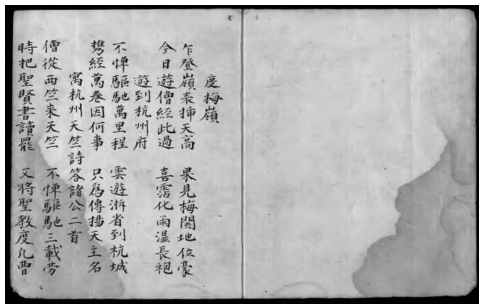 度梅嶺
乍登嶺表揷天高　果見梅關地位豪
今日遊僧經此過　喜霑化雨濕長袍
遊到杭州府
不憚驅馳萬里程　雲遊浙省到杭城
携經萬卷因何事　只爲傳揚天主名
寓杭州天竺詩答諸公二首
僧從西竺来天竺　不憚驅馳三載勞
時把聖賢書讀罷　又將聖教度凡曹